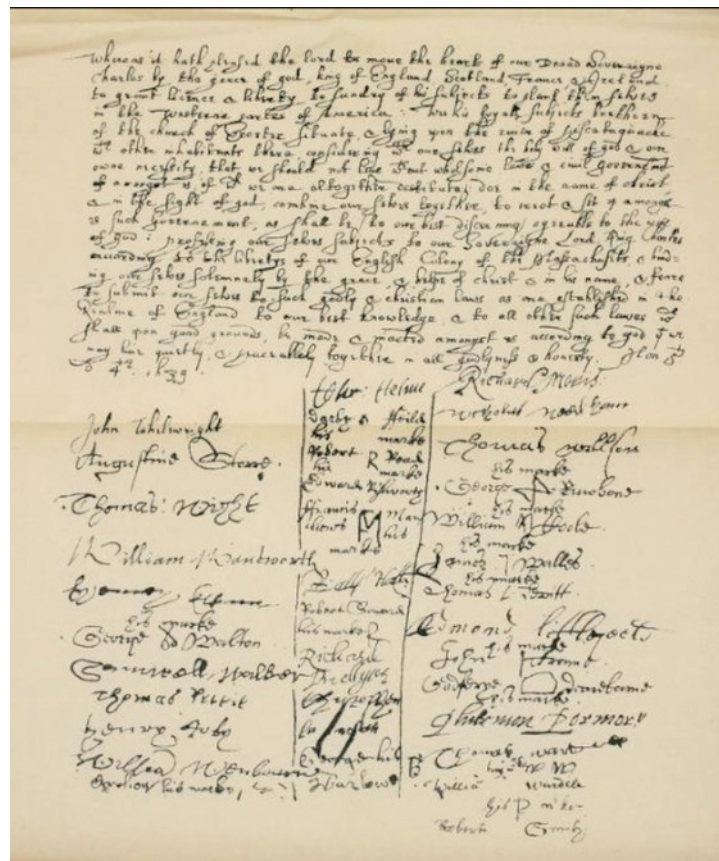 Whereas it hath pleased the lord to move the heart of our Dread Soveraigne
Charles by the grace of god, king of England Scotland France & Ireland
to grant licence & liberty to sundry of his subjects to plant them selves
in the westerne partes of America : Wee his loyall subjects brethren
of the church of Exeter situate, & lying upon the river of Piscataquacke
wth other inhabitants there considering wth our selves the holy will of god & our
owne necessity, that we should not live wthout wholsome lawes & civil government
amongst us of wch we are altogether destitute; doe in the name of christ
& in the sight of god, combine our selves together, to erect & set up amongst
us such government, as shall be to our best discerning, agreeable to the will
of god : professing our selves subjects to our Soveraigne Lord King Charles
according to the libertys of our English Colony of the Massachusets & bind-
ing our selves solemnely by the grace & helpe of christ & in his name & feare
to submit our selves to such godly & christian laws as are established in the
Realme of England to our best knowledge, & to all other such lawes wch
shall upon good grounds, be made & inacted amongst us according to god yt we
may live quietly, & peaceablely together in all godlyness & honesty.
4th 1639
John Whelwright
Augustine Storre.
Thomas Wight
William Wantworth
his marke
George Walton
Samuell Walker
Thomas Pettit
Henry Roby
William Wenbourne
his marke
Helme
Darby Feild
his marke
Robert R Read
his marke
Edward Rishworth
Francis Mathews
M his
marke
Ralf Hall
Robert Seward
his marke
Richard
Bullgar
Christopher
Lawson
George his
Barlow B
Richard Morris
Nicholas Needham
Thomas Willson
his marke
George Rawbone
his marke
William Coole
his marke
James Walles
his marke
Thomas L Levitt
Edmond Littlefield
his marke
John Crame
Godfrye Dearborne
his marke
Philemon Pormort
Thomas Wardell
his W W
William Wardell
his P marke
Robert Smith